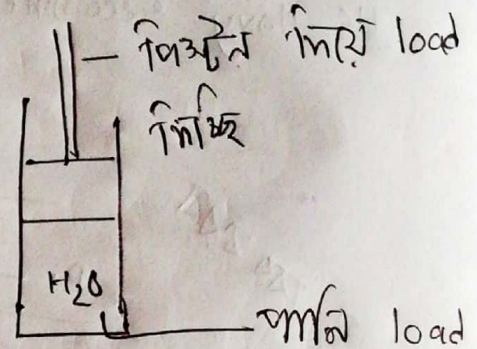 পিস্টন দিয়ে load
দিচ্ছি
H₂O
পানি load